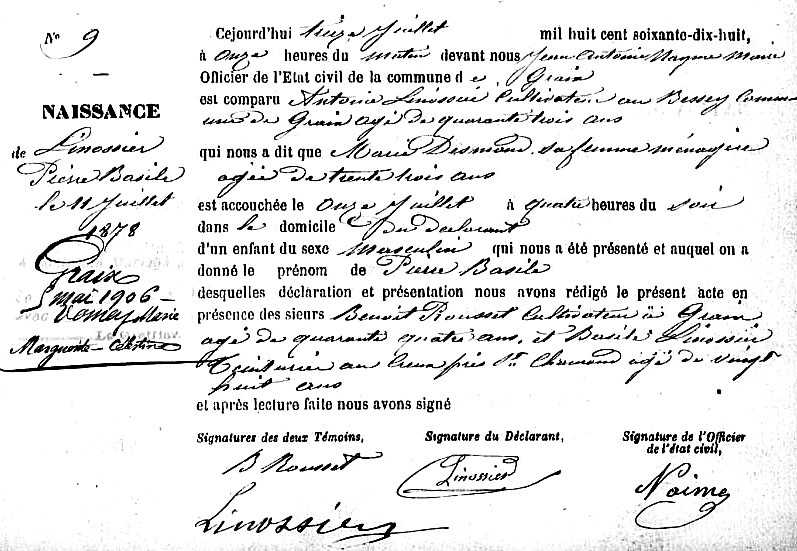 N° 9
NAISSANCE
de Linossier
Pierre Basile
le 11 Juillet
1878
Graix
5 mai 1906
Marie
Marguerite Célestine
Cejourd'hui treize Juillet mil huit cent soixante-dix-huit,
à onze heures du matin devant nous Jean Antoine Mayme Maire
Officier de l'Etat civil de la commune de Graix
est comparu Antoine Linossier Cultivateur au Bessey Commu-
ne de Graix agé de quarante trois ans
qui nous a dit que Marie Desmond sa femme ménagère
agée de trente trois ans
est accouchée le onze Juillet à quatre heures du soir
dans le domicile du déclarant
d'un enfant du sexe Masculin qui nous a été présenté et auquel on a
donné le prénom de Pierre Basile
desquelles déclaration et présentation nous avons rédigé le présent acte en
présence des sieurs Benoit Rousset Cultivateur à Graix
agé de quarante quatre ans, et Basile Linossier
Teinturier au Creux près St Chamond agé de vingt
huit ans
et après lecture faite nous avons signé
Signatures des deux Témoins, Signature du Déclarant, Signature de l'Officier
de l'état civil,
B Rousset Linossier
Linossier